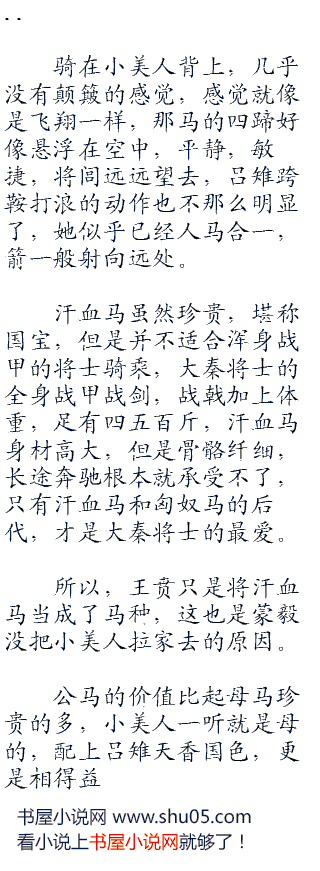 ..
骑在小美人背上，几乎
没有颠簸的感觉，感觉就像
是飞翔一样，那马的四蹄好
像悬浮在空中，平静，敏
捷，将闾远远望去，吕雉跨
鞍打浪的动作也不那么明显
了，她似乎已经人马合一，
箭一般射向远处。
汗血马虽然珍贵，堪称
国宝，但是并不适合浑身战
甲的将士骑乘，大秦将士的
全身战甲战剑，战戟加上体
重，足有四五百斤，汗血马
身材高大，但是骨骼纤细，
长途奔驰根本就承受不了，
只有汗血马和匈奴马的后
代，才是大秦将士的最爱。
所以，王贲只是将汗血
马当成了马种，这也是蒙毅
没把小美人拉家去的原因。
公马的价值比起母马珍
贵的多，小美人一听就是母
的，配上吕雉天香国色，更
是相得益
书屋小说网 www.shu05.com
看小说上书屋小说网就够了！